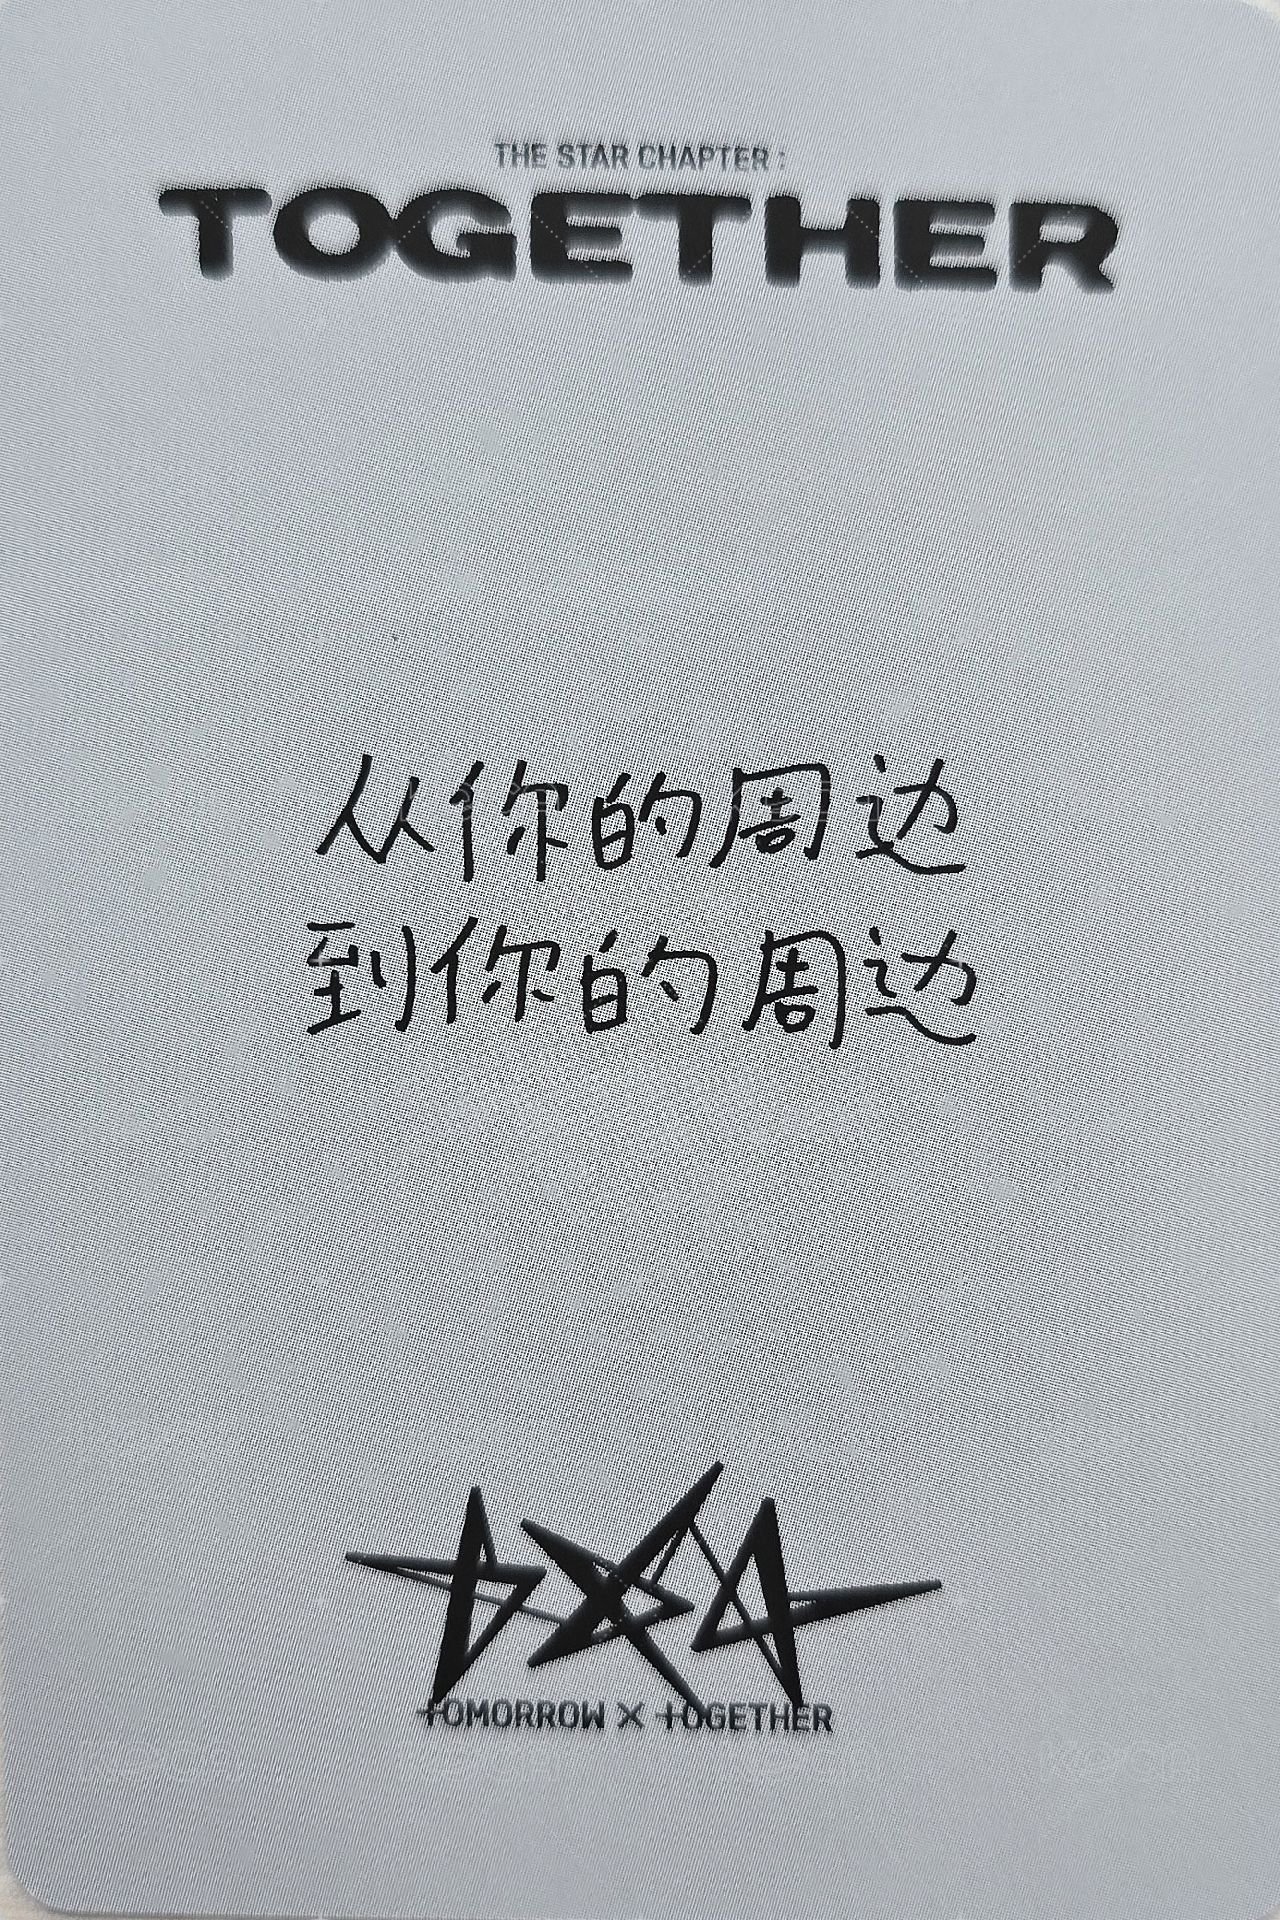 THE STAR CHAPTER :
TOGETHER
从你的周边
到你的周边
TOMORROW X TOGETHER
KOCA KOCA KOCA KOCA